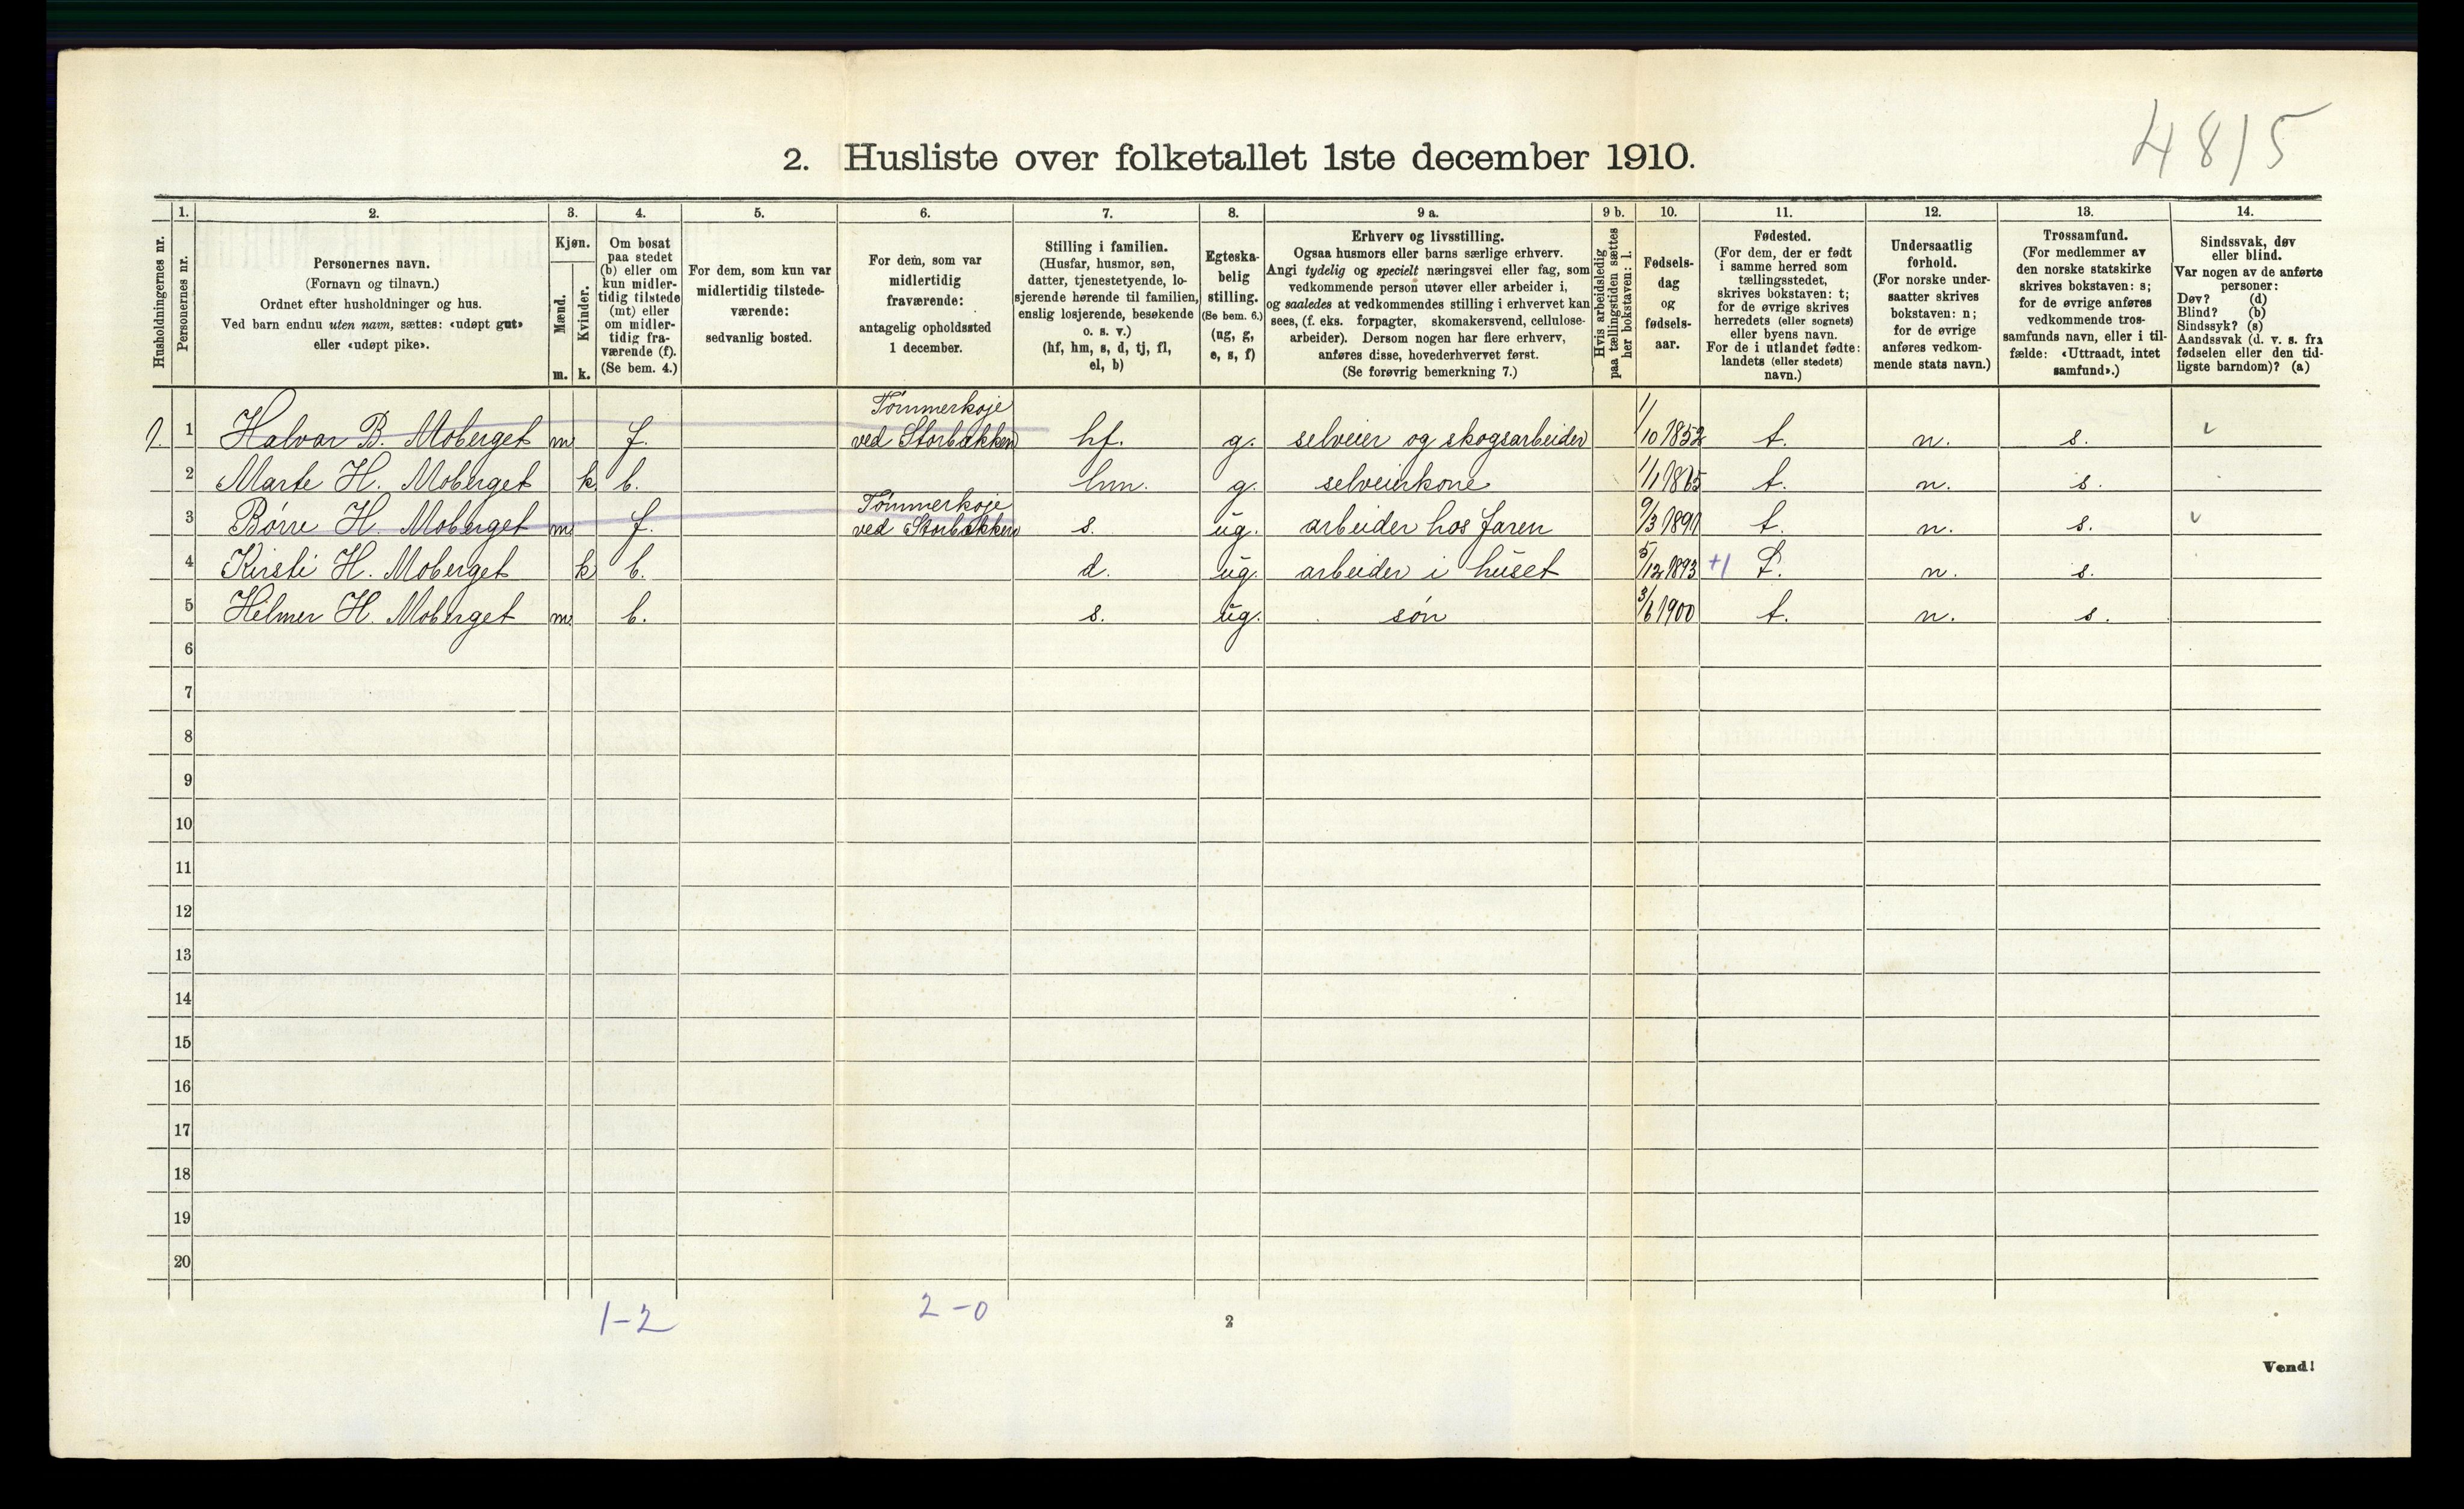 4815
2. Husliste over folketallet 1ste december 1910.
Husholdningernes nr.
1. Personernes nr.
2. Personernes navn. (Fornavn og tilnavn.) Ordnet efter husholdninger og hus. Ved barn endnu uten navn, sættes: «udøpt gut» eller «udøpt pike».
3. Kjøn. Mænd. m. Kvinder. k.
4. Om bosat paa stedet (b) eller om kun midler-tidig tilstede (mt) eller om midler-tidig fra-værende (f). (Se bem. 4.)
5. For dem, som kun var midlertidig tilstede-værende: sedvanlig bosted.
6. For dem, som var midlertidig fraværende: antagelig opholdssted 1 december.
7. Stilling i familien. (Husfar, husmor, søn, datter, tjenestetyende, lo-sjerende hørende til familien, enslig losjerende, besøkende o. s. v.) (hf, hm, s, d, tj, fl, el, b)
8. Egteska-belig stilling. (Se bem. 6.) (ug, g, e, s, f)
9 a. Erhverv og livsstilling. Ogsaa husmors eller barns særlige erhverv. Angi tydelig og specielt næringsvei eller fag, som vedkommende person utøver eller arbeider i, og saaledes at vedkommendes stilling i erhvervet kan sees, (f. eks. forpagter, skomakersvend, cellulose-arbeider). Dersom nogen har flere erhverv, anføres disse, hovederhvervet først. (Se forøvrig bemerkning 7.)
9 b. Hvis arbeidsledig paa tællingstiden sættes her bokstaven: l.
10. Fødsels-dag og fødsels-aar.
11. Fødested. (For dem, der er født i samme herred som tællingsstedet, skrives bokstaven: t; for de øvrige skrives herredets (eller sognets) eller byens navn. For de i utlandet fødte: landets (eller stedets) navn.)
12. Undersaatlig forhold. (For norske under-saatter skrives bokstaven: n; for de øvrige anføres vedkom-mende stats navn.)
13. Trossamfund. (For medlemmer av den norske statskirke skrives bokstaven: s; for de øvrige anføres vedkommende tros-samfunds navn, eller i til-fælde: «Uttraadt, intet samfund».)
14. Sindssvak, døv eller blind. Var nogen av de anførte personer: Døv? (d) Blind? (b) Sindssyk? (s) Aandssvak (d. v. s. fra fødselen eller den tid-ligste barndom)? (a)
1. 1 Halvor B. Moberget m. f. Tømmerkoje ved Storbækken hf. g. selveier og skogsarbeider 1/10 1852 t. n. s.
2 Marte H. Moberget k. b. hm. g. selveierkone 1/1 1865 t. n. s.
3 Børre H. Moberget m. f. Tømmerkoje ved Storbækken s. ug. arbeider hos faren 9/3 1891 t. n. s.
4 Kirsti H. Moberget k b. d. ug. arbeider i huset 5/12 1893 +1 t. n. s.
5 Hilmer H. Moberget m. b. s. ug. søn 3/6 1900 t. n. s.
6
7
8
9
10
11
12
13
14
15
16
17
18
19
20
1-2 2-0
2
Vend!